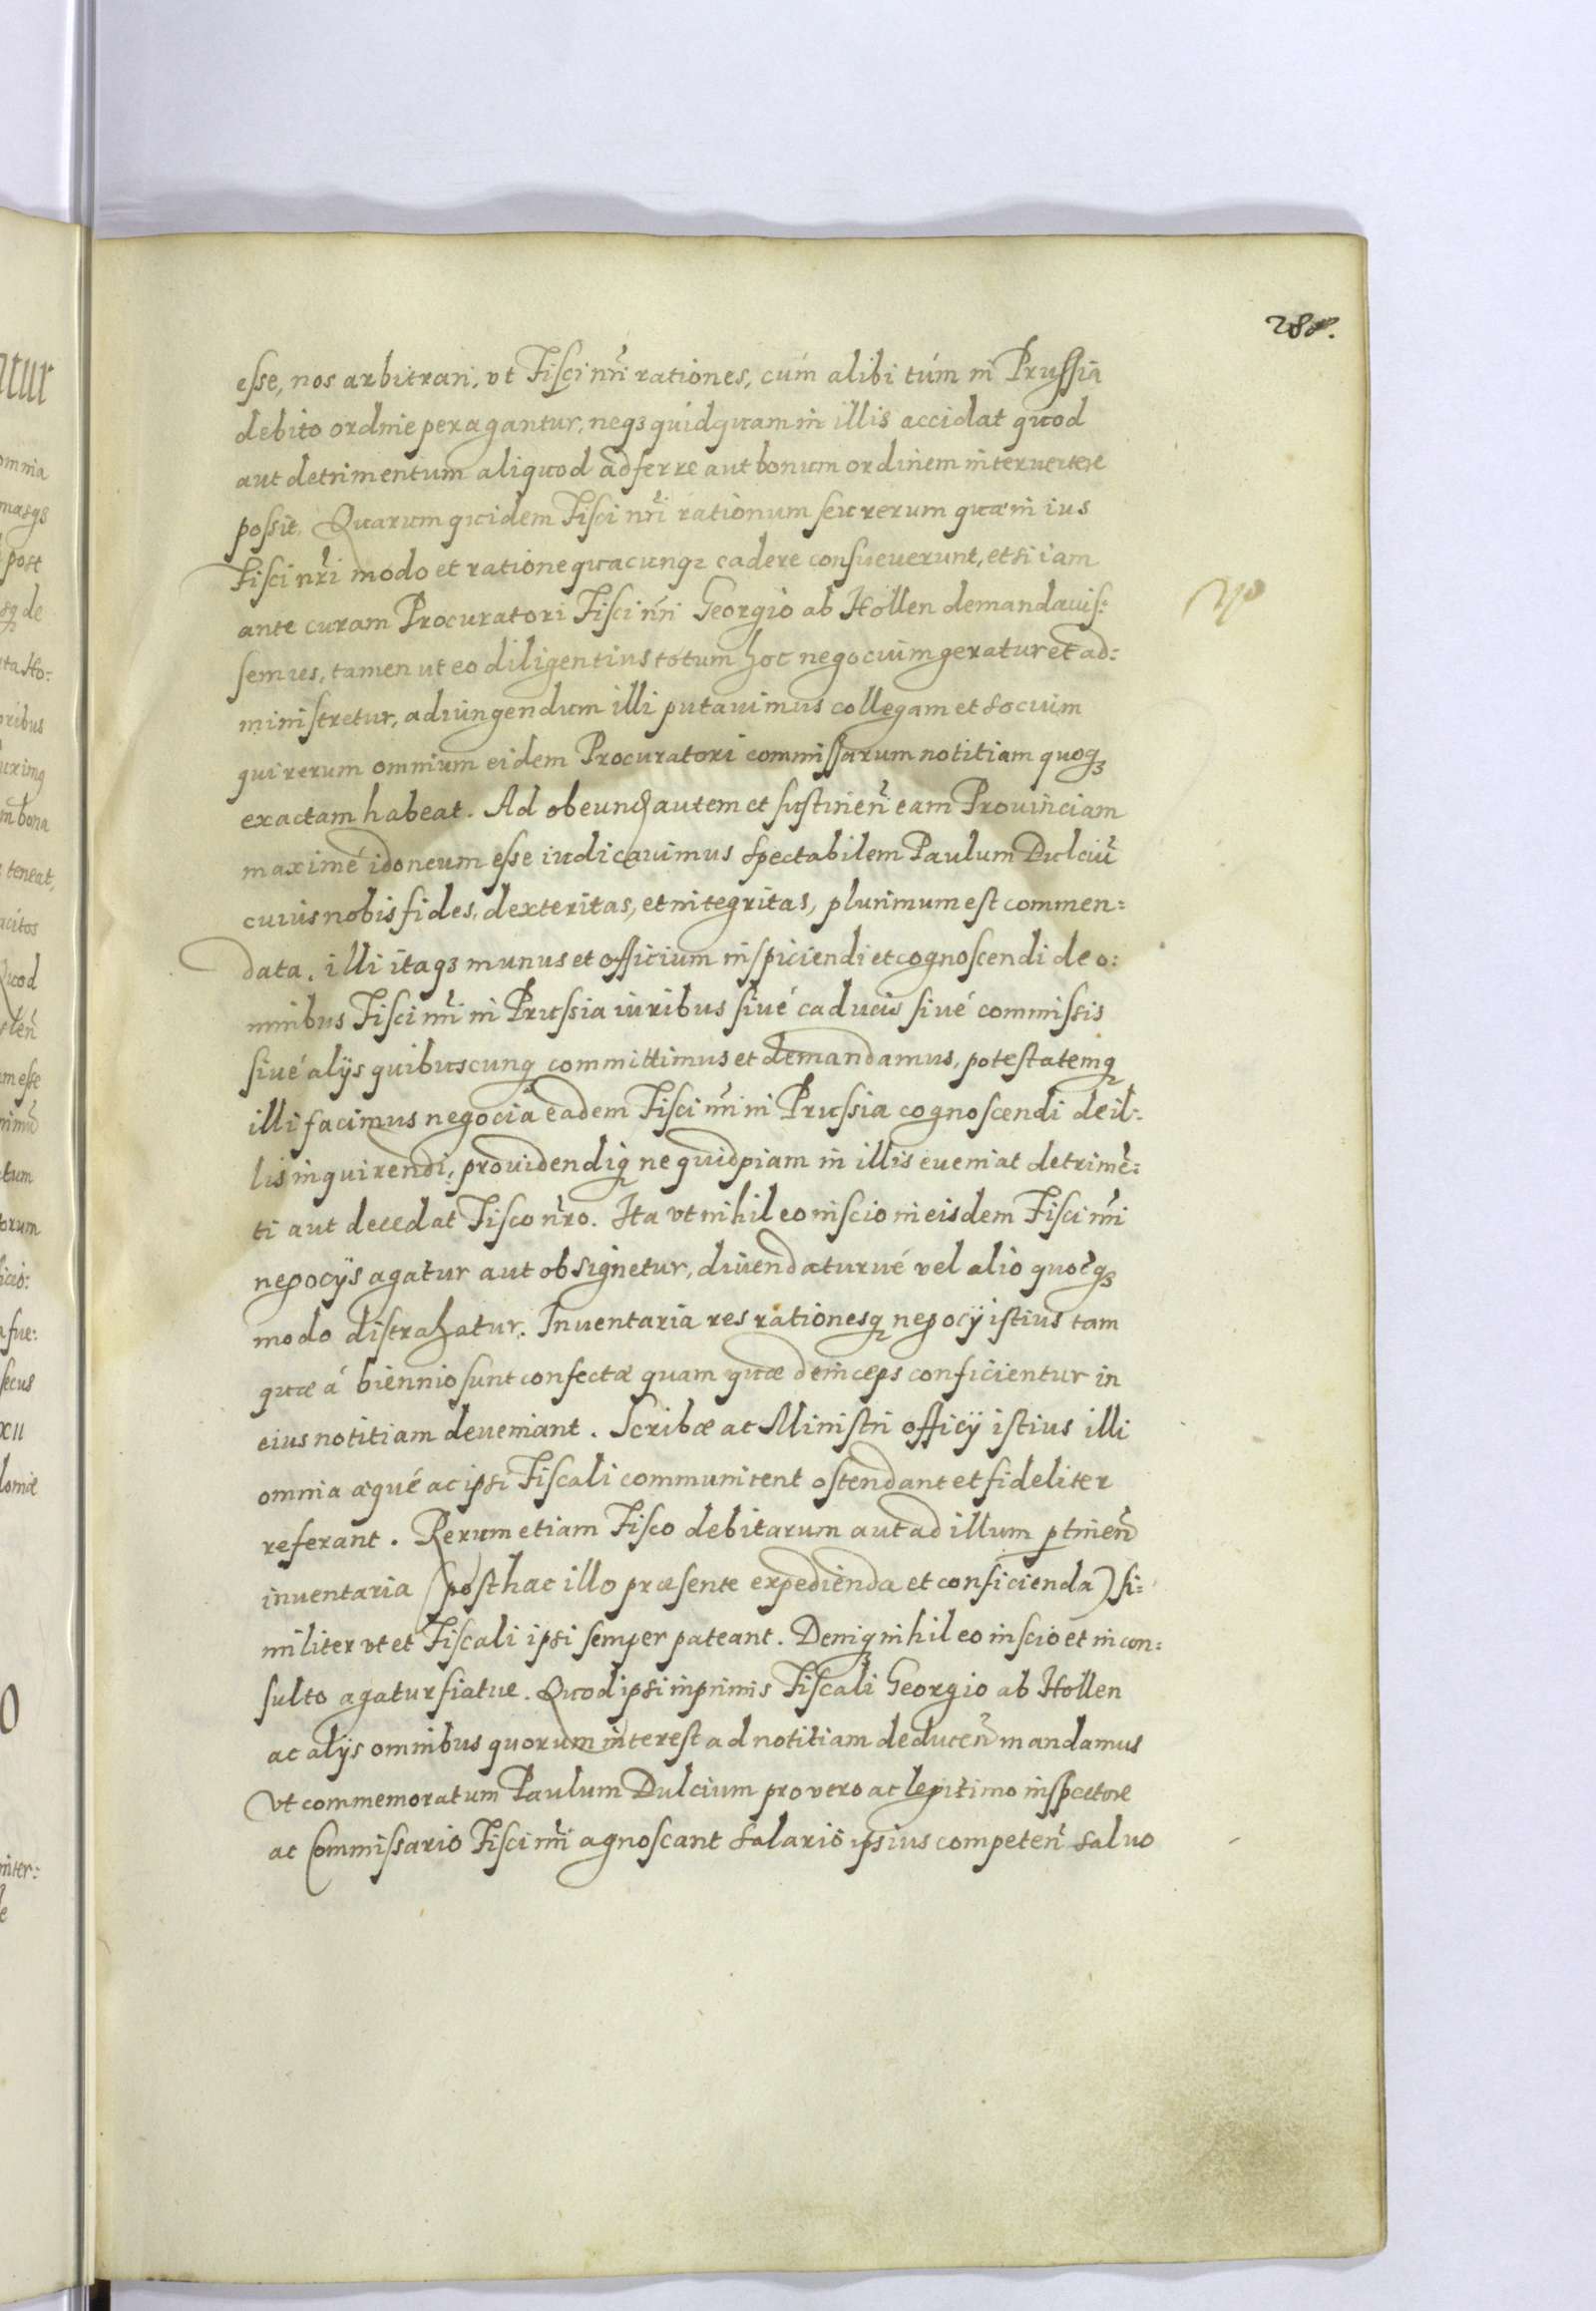 288.
esse, nos arbitrari, vt Fisci nr̃i rationes, cúm alibi túm in Prussia
debito ordine peragantur, neqꝫ quidquam in illis accidat quod
aut detrimentum aliquod adferre aut bonum ordinem interuertere
possit. Quarum quidem Fisci nr̃i rationum seu rerum quæ in ius
Fisci nr̃i modo et ratione quacunqꝫ cadere consueuerunt, etsi iam
ante curam Procuratori Fisci nr̃i Georgio ab Höllen demandauis:
semus, tamen ut eo diligentius totum hoc negocium geratur et ad:
ministretur, adiungendum illi putauimus collegam et socium
qui rerum omnium eidem Procuratori commissarum notitiam quoqꝫ
exactam habeat. Ad obeund autem et sustinen̄ eam Prouinciam
maximé idoneum esse iudicauimus Spectabilem Paulum Dulciū
cuius nobis fides, dexteritas, et integritas, plurimum est commen:
data. illi itaqꝫ munus et officium inspiciendi et cognoscendi de o:
mnibus Fisci nr̃i in Prussia iuribus siué caducis siué commissis
siué alijs quibuscunqꝫ committimus et demandamus, potestatemqꝫ
illi facimus negocia eadem Fisci nr̃i in Prussia cognoscendi de il:
lis inquirendi, prouidendiqꝫ ne quidpiam in illis eueniat detrimē:
ti aut decedat Fisco nr̃o. Ita vt nihil eo inscio in eisdem Fisci nr̃i
negocijs agatur aut obsignetur, diuendaturué vel alio quocqꝫ
modo distrahatur. Inuentaria res rationesqꝫ negocij istius tam
quæ á biennio sunt confectæ quam quæ deinceps conficientur in
eius notitiam deueniant. Scribæ ac Ministri officij istius illi
omnia æqué ac ipsi Fiscali communicent ostendant et fideliter
referant. Rerum etiam Fisco debitarum aut ad illum ptinen̄
inuentaria (posthac illo præsente expedienda et conficienda) si:
militer vt et Fiscali ipsi semper pateant. Deniqꝫ nihil eo inscio et incon:
sulto agatur fiatue. Quod ipsi inprimis Fiscali Georgio ab Höllen
ac alijs omnibus quorum interest ad notitiam deducen̄ mandamus
vt commemoratum Paulum Dulcium pro vero ac legitimo inspectore
ac Commissario Fisci nr̃i agnoscant salario ipsius competen̄ saluo